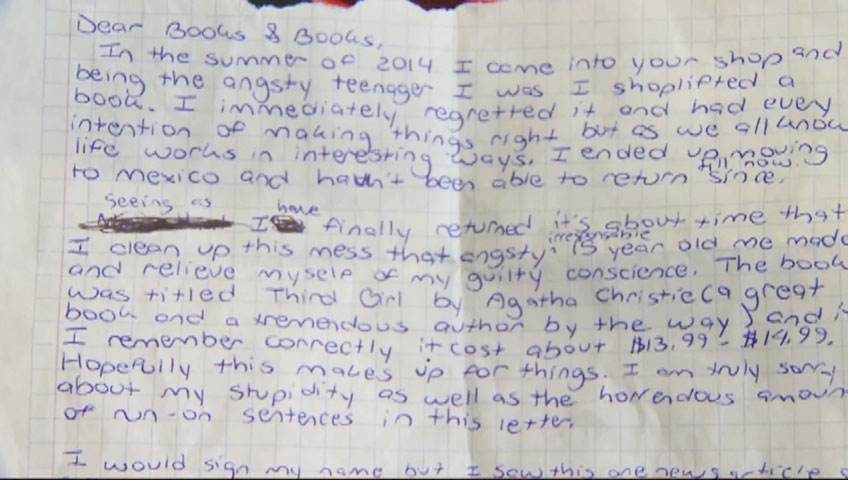 Dear Books & Books,
In the summer of 2014 I came into your shop and
being the angsty teenager I was I shoplifted a
book. I immediately regretted it and had every
intention of making things right but as we all know
life works in interesting ways. I ended up moving
till now.
to Mexico and hadn't been able to return since.
seeing as have
I finally returned it's about time that
irresponsible
I clean up this mess that angsty, 15 year old me made
and relieve myself of my guilty conscience. The book
was titled Third Girl by Agatha Christie (a great
book and a tremendous author by the way) and i
I remember correctly it cost about $13.99 - $14.99.
Hopefully this makes up for things. I am truly sorry
about my stupidity as well as the horrendous amoun
of run-on sentences in this letter.
I would sign my name but I saw this one news article